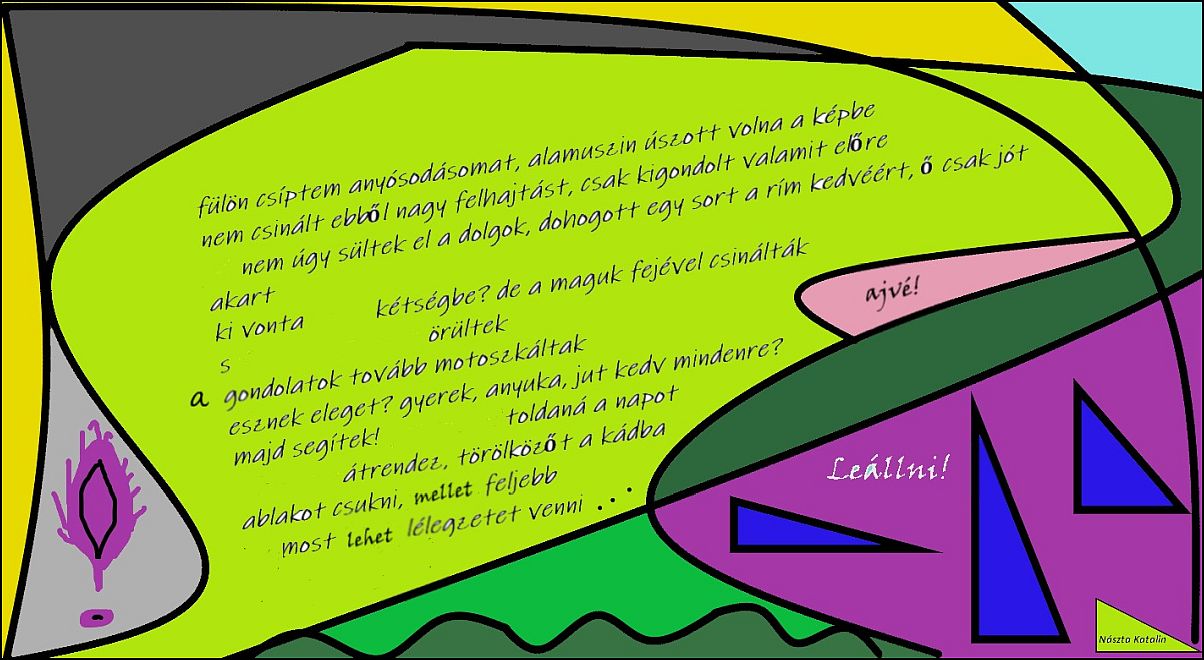 fülön csíptem anyósodásomat, alamuszin úszott volna a képbe
nem csinált ebből nagy felhajtást, csak kigondolt valamit előre
nem úgy sültek el a dolgok, dohogott egy sort a rím kedvéért, ő csak jót
akart
kétségbe? de a maguk fejével csinálták
ki vonta
örültek
s
a gondolatok tovább motoszkáltak
esznek eleget? gyerek, anyuka, jut kedv mindenre?
majd segítek!
toldaná a napot
átrendez, törölközőt a kádba
ablakot csukni, mellet feljebb
most lehet lélegzetet venni . . .
ajvé!
Leállni!
Nászta Katalin